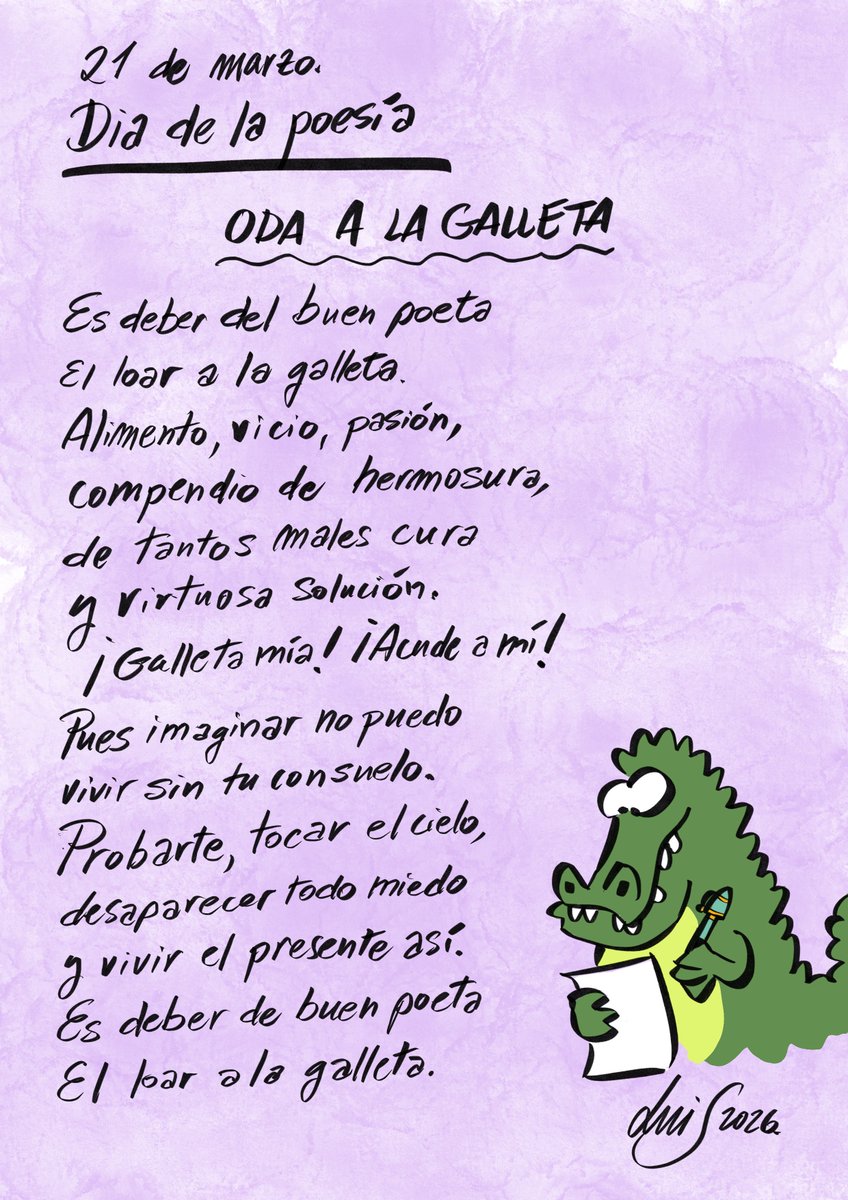 21 de marzo.
Dia de la poesía
ODA A LA GALLETA
Es deber del buen poeta
El loar a la galleta.
Alimento, vicio, pasión,
compendio de hermosura,
de tantos males cura
y virtuosa solución.
¡Galleta mía! ¡Acude a mí!
Pues imaginar no puedo
vivir sin tu consuelo.
Probarte, tocar el cielo,
desaparecer todo miedo
y vivir el presente así.
Es deber de buen poeta
El loar a la galleta.
Luis 2026